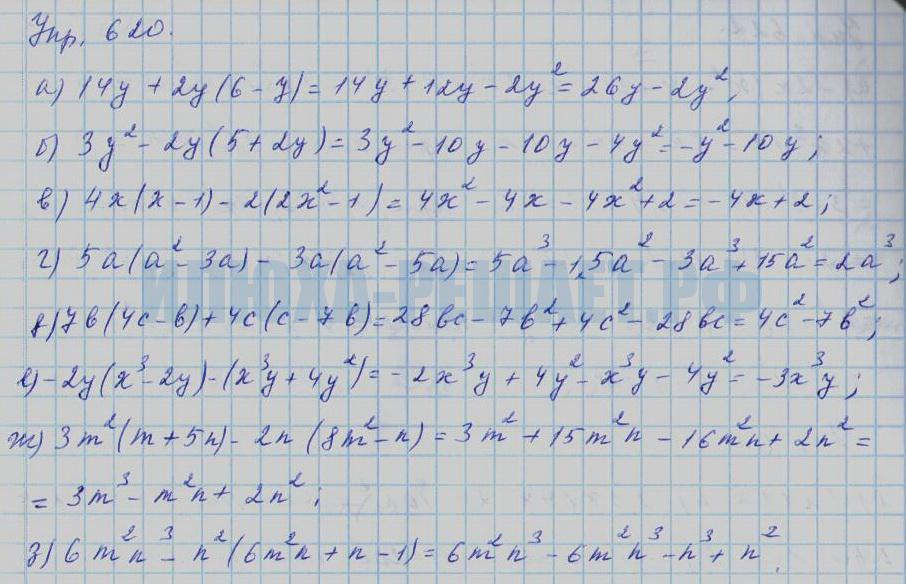 Упр. 620.
а) 14y + 2y(6 - y) = 14y + 12y - 2y² = 26y - 2y²,
б) 3y² - 2y(5 + 2y) = 3y² - 10y - 10y - 4y² = -y² - 10y;
в) 4x(x - 1) - 2(2x² - 1) = 4x² - 4x - 4x² + 2 = -4x + 2;
г) 5a(a² - 3a) - 3a(a² - 5a) = 5a³ - 1,5a² - 3a³ + 15a² = 2a³;
ИЛЮХА-РЕШАЕТ.РФ
д) 7в(4с - в) + 4с(с - 7в) = 28вс - 7в² + 4с² - 28вс = 4с² - 7в²;
е) -2y(x³ - 2y) - (x³y + 4y²) = -2x³y + 4y² - x³y - 4y² = -3x³y;
ж) 3m²(m + 5n) - 2n(8m² - n) = 3m² + 15m²n - 16m²n + 2n² =
= 3m³ - m²n + 2n²;
з) 6m²n³ - n²(6m²n + n - 1) = 6m²n³ - 6m²n³ - n³ + n².